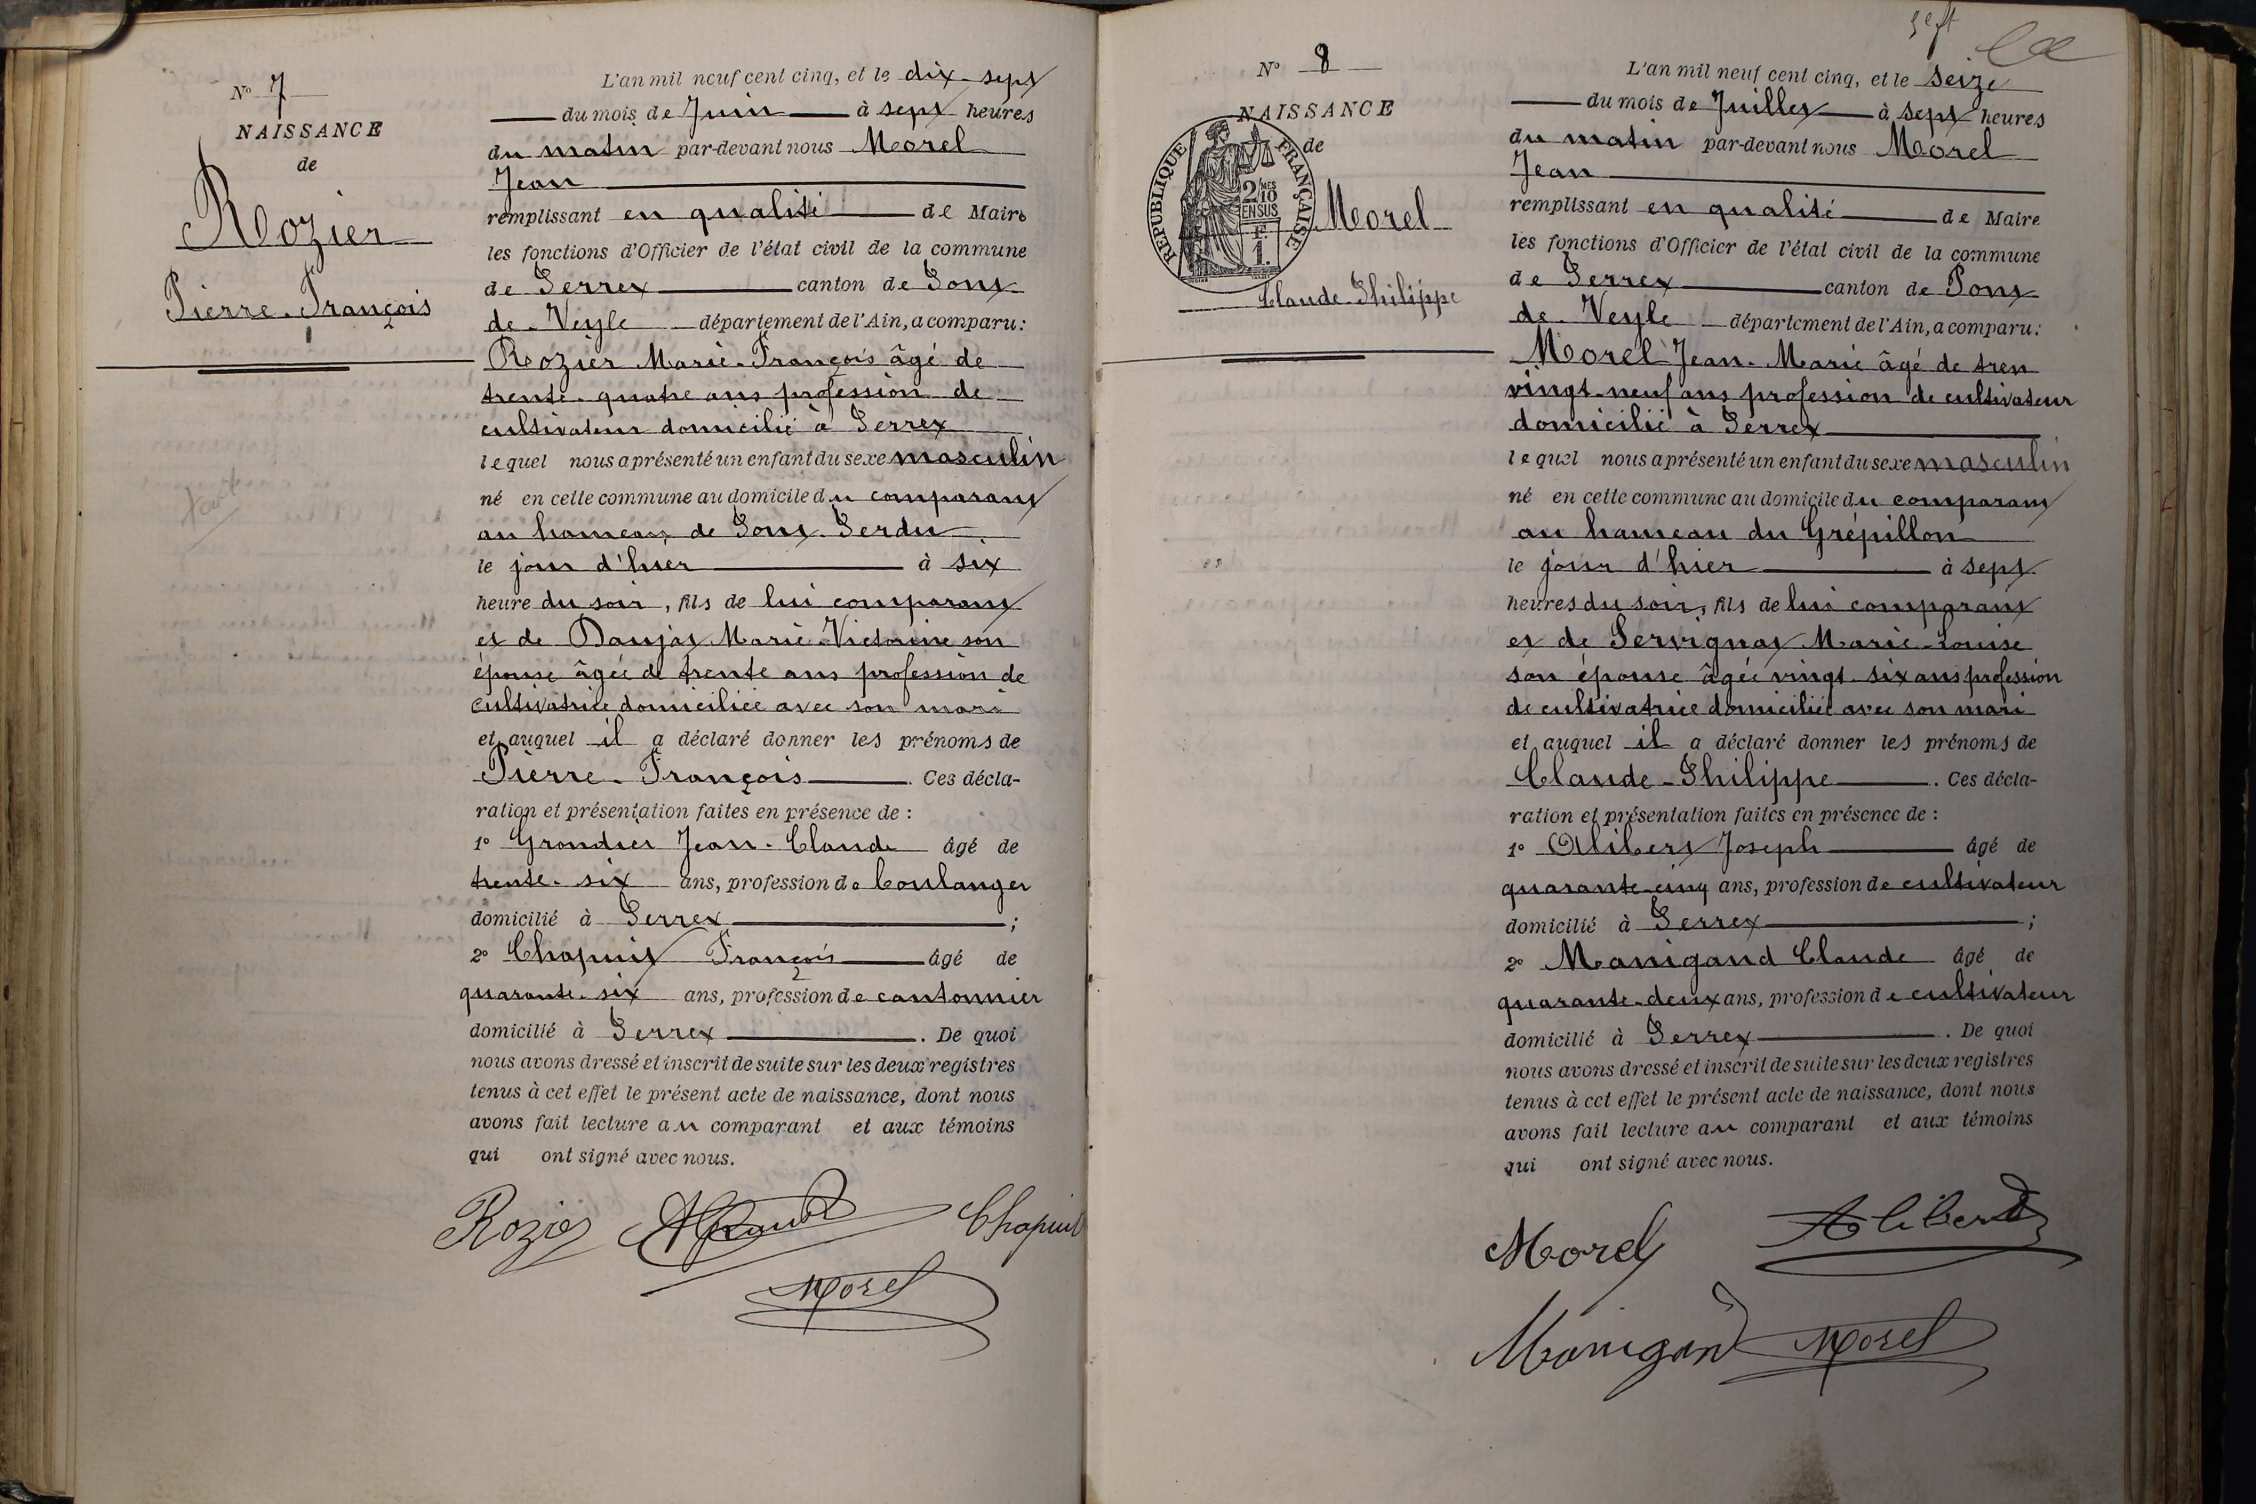 N° 7
NAISSANCE
de
Rozier
Pierre-François
L'an mil neuf cent cinq, et le dix-sept
du mois de Juin à sept heures
du matin par-devant nous Morel
Jean
remplissant en qualité de Maire
les fonctions d'Officier de l'état civil de la commune
de Perrex canton de Pont
de-Veyle département de l'Ain, a comparu:
Rozier Marie-François âgé de
trente-quatre ans profession de
cultivateur domicilié à Perrex
lequel nous a présenté un enfant du sexe masculin
né en cette commune au domicile du comparant
au hameau de Pont-Perdu
le jour d'hier à six
heure du soir, fils de lui comparant
et de Danjat Marie-Victorine son
épouse âgée de trente ans profession de
cultivatrice domiciliée avec son mari
et auquel il a déclaré donner les prénoms de
Pierre-François. Ces décla-
ration et présentation faites en présence de:
1° Grondier Jean-Claude âgé de
trente-six ans, profession de boulanger
domicilié à Perrex;
2° Chapuis François âgé de
quarante-six ans, profession de cantonnier
domicilié à Perrex. De quoi
nous avons dressé et inscrit de suite sur les deux registres
tenus à cet effet le présent acte de naissance, dont nous
avons fait lecture au comparant et aux témoins
qui ont signé avec nous.
Rozier Chapuis
Morel
sept
N° 8
NAISSANCE
de
RÉPUBLIQUE FRANÇAISE
2/10MES
EN SUS
F.
1.
Morel
Claude-Philippe
L'an mil neuf cent cinq, et le seize
du mois de Juillet à sept heures
du matin par-devant nous Morel
Jean
remplissant en qualité de Maire
les fonctions d'Officier de l'état civil de la commune
de Perrex canton de Pont
de-Veyle département de l'Ain, a comparu:
Morel Jean-Marie âgé de tren
vingt-neuf ans profession de cultivateur
domicilié à Perrex
lequel nous a présenté un enfant du sexe masculin
né en cette commune au domicile du comparant
au hameau du Grépillon
le jour d'hier à sept
heures du soir, fils de lui comparant
et de Servignat Marie-Louise
son épouse âgée vingt-six ans profession
de cultivatrice domiciliée avec son mari
et auquel il a déclaré donner les prénoms de
Claude-Philippe. Ces décla-
ration et présentation faites en présence de:
1° Alibert Joseph âgé de
quarante-cinq ans, profession de cultivateur
domicilié à Perrex;
2° Manigand Claude âgé de
quarante-deux ans, profession de cultivateur
domicilié à Perrex. De quoi
nous avons dressé et inscrit de suite sur les deux registres
tenus à cet effet le présent acte de naissance, dont nous
avons fait lecture au comparant et aux témoins
qui ont signé avec nous.
Morel Alibert
Manigand Morel